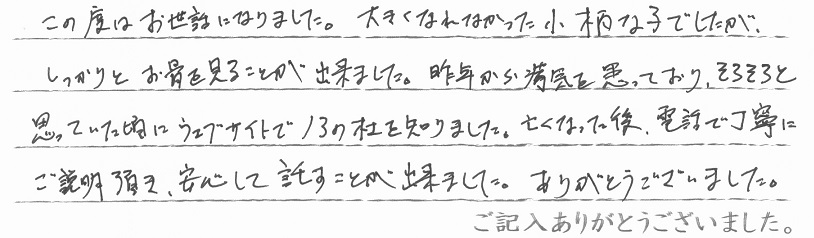 この度はお世話になりました。大きくなれなかった小柄な子でしたが、
しっかりとお骨を見ることが出来ました。昨年から病気を患っており、そろそろと
思っていた頃にウェブサイトで の杜を知りました。亡くなった後、電話で丁寧に
ご説明頂き、安心して託すことが出来ました。ありがとうございました。
ご記入ありがとうございました。